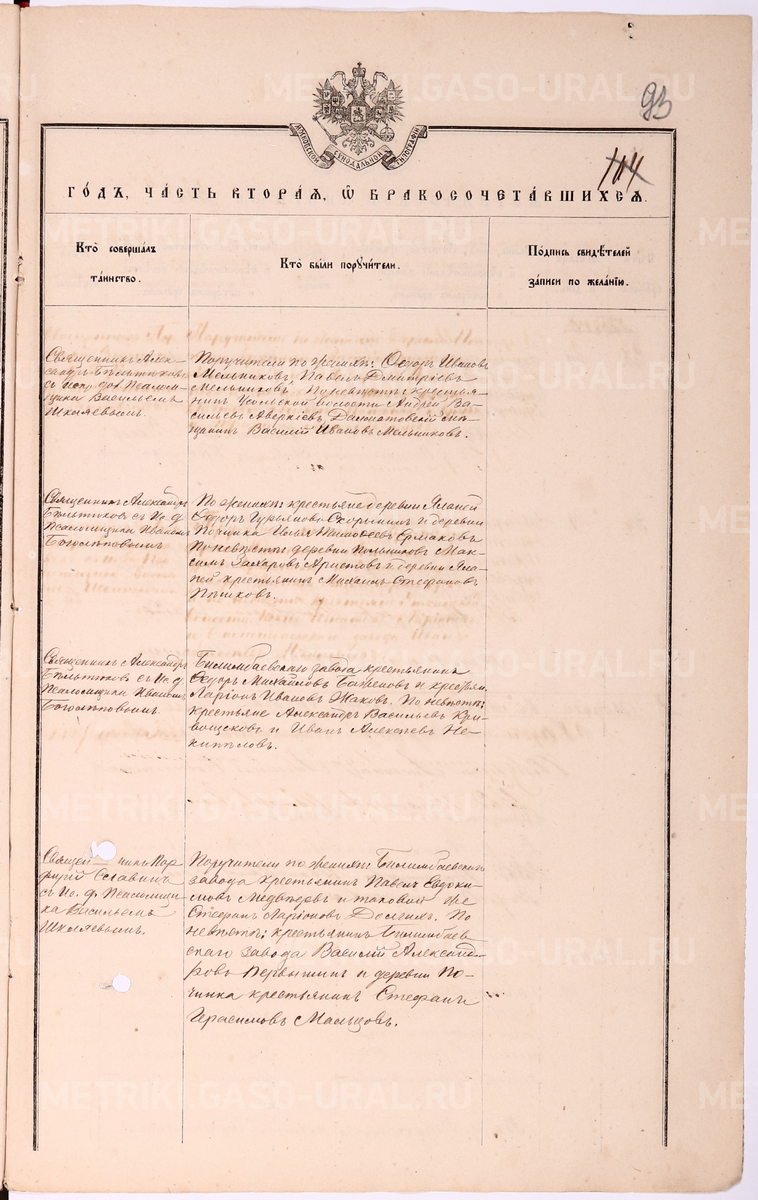 93
104
МОСКОВСКОЙ СѴНОДАЛЬНОЙ ТИПОГРАФІИ
ГО́ДЪ, ЧА́СТЬ ВТОРА́Я, Ѡ БРАКОСОЧЕТА́ВШИХСЯ.
Кто̀ совершалъ
та́инство.
Кто̀ бы́ли порꙋчи́тели.
По́дпись свидѣ́телей
за́писи по жела́нїю.
Священникъ Алек-
сандръ Бѣльтюковъ
съ испр. дол. Псалом-
щика Василіемъ
Шкляевымъ.
Поручители по женихѣ: Ѳедоръ Ивановъ
Мельниковъ, Павелъ Дмитріевъ
Мельниковъ, По невѣстѣ: крестья-
нинъ Усольской волости Андрей Ва-
сильевъ Аверкіевъ, Далматовскій мѣ-
щанинъ Василій Ивановъ Мельниковъ.
Священникъ Александръ
Бѣльтюковъ съ И. д.
Псаломщика Иваномъ
Боголѣповымъ
По женихѣ: крестьяне деревни
Ѳедоръ Гурьяновъ и деревни
Починка Илья Тимоѳеевъ Ермаковъ
По невѣстѣ: деревни Мак-
симъ Захаровъ Аристовъ и деревни
крестьянинъ Михаилъ Стефановъ
Священникъ Александръ
Бѣльтюковъ съ И. д.
Псаломщика Иваномъ
Боголѣповымъ.
Билимбаевскаго завода крестьянинъ
Ѳедоръ Михайловъ Баженовъ и крестьян.
Ларіонъ Ивановъ Жаковъ. По невѣстѣ:
крестьяне Александръ Васильевъ Кри-
вощековъ и Иванъ Алексѣевъ Не-
Священникъ Пор-
фирій Славнинъ
съ И. д. Псаломщи-
ка Василіемъ
Шкляевымъ.
Поручители по женихѣ: Билимбаевскаго
завода крестьянинъ Павелъ Евдоки-
мовъ Медвѣдевъ и таковой же
Стефанъ Ларіоновъ Долгихъ. По
невѣстѣ: крестьянинъ Билимбаев-
скаго завода Василій Александ-
ровъ Первышинъ и деревни По-
чинка крестьянинъ Стефанъ
Герасимовъ Мальцовъ.
METRIKI.GASO-URAL.RU